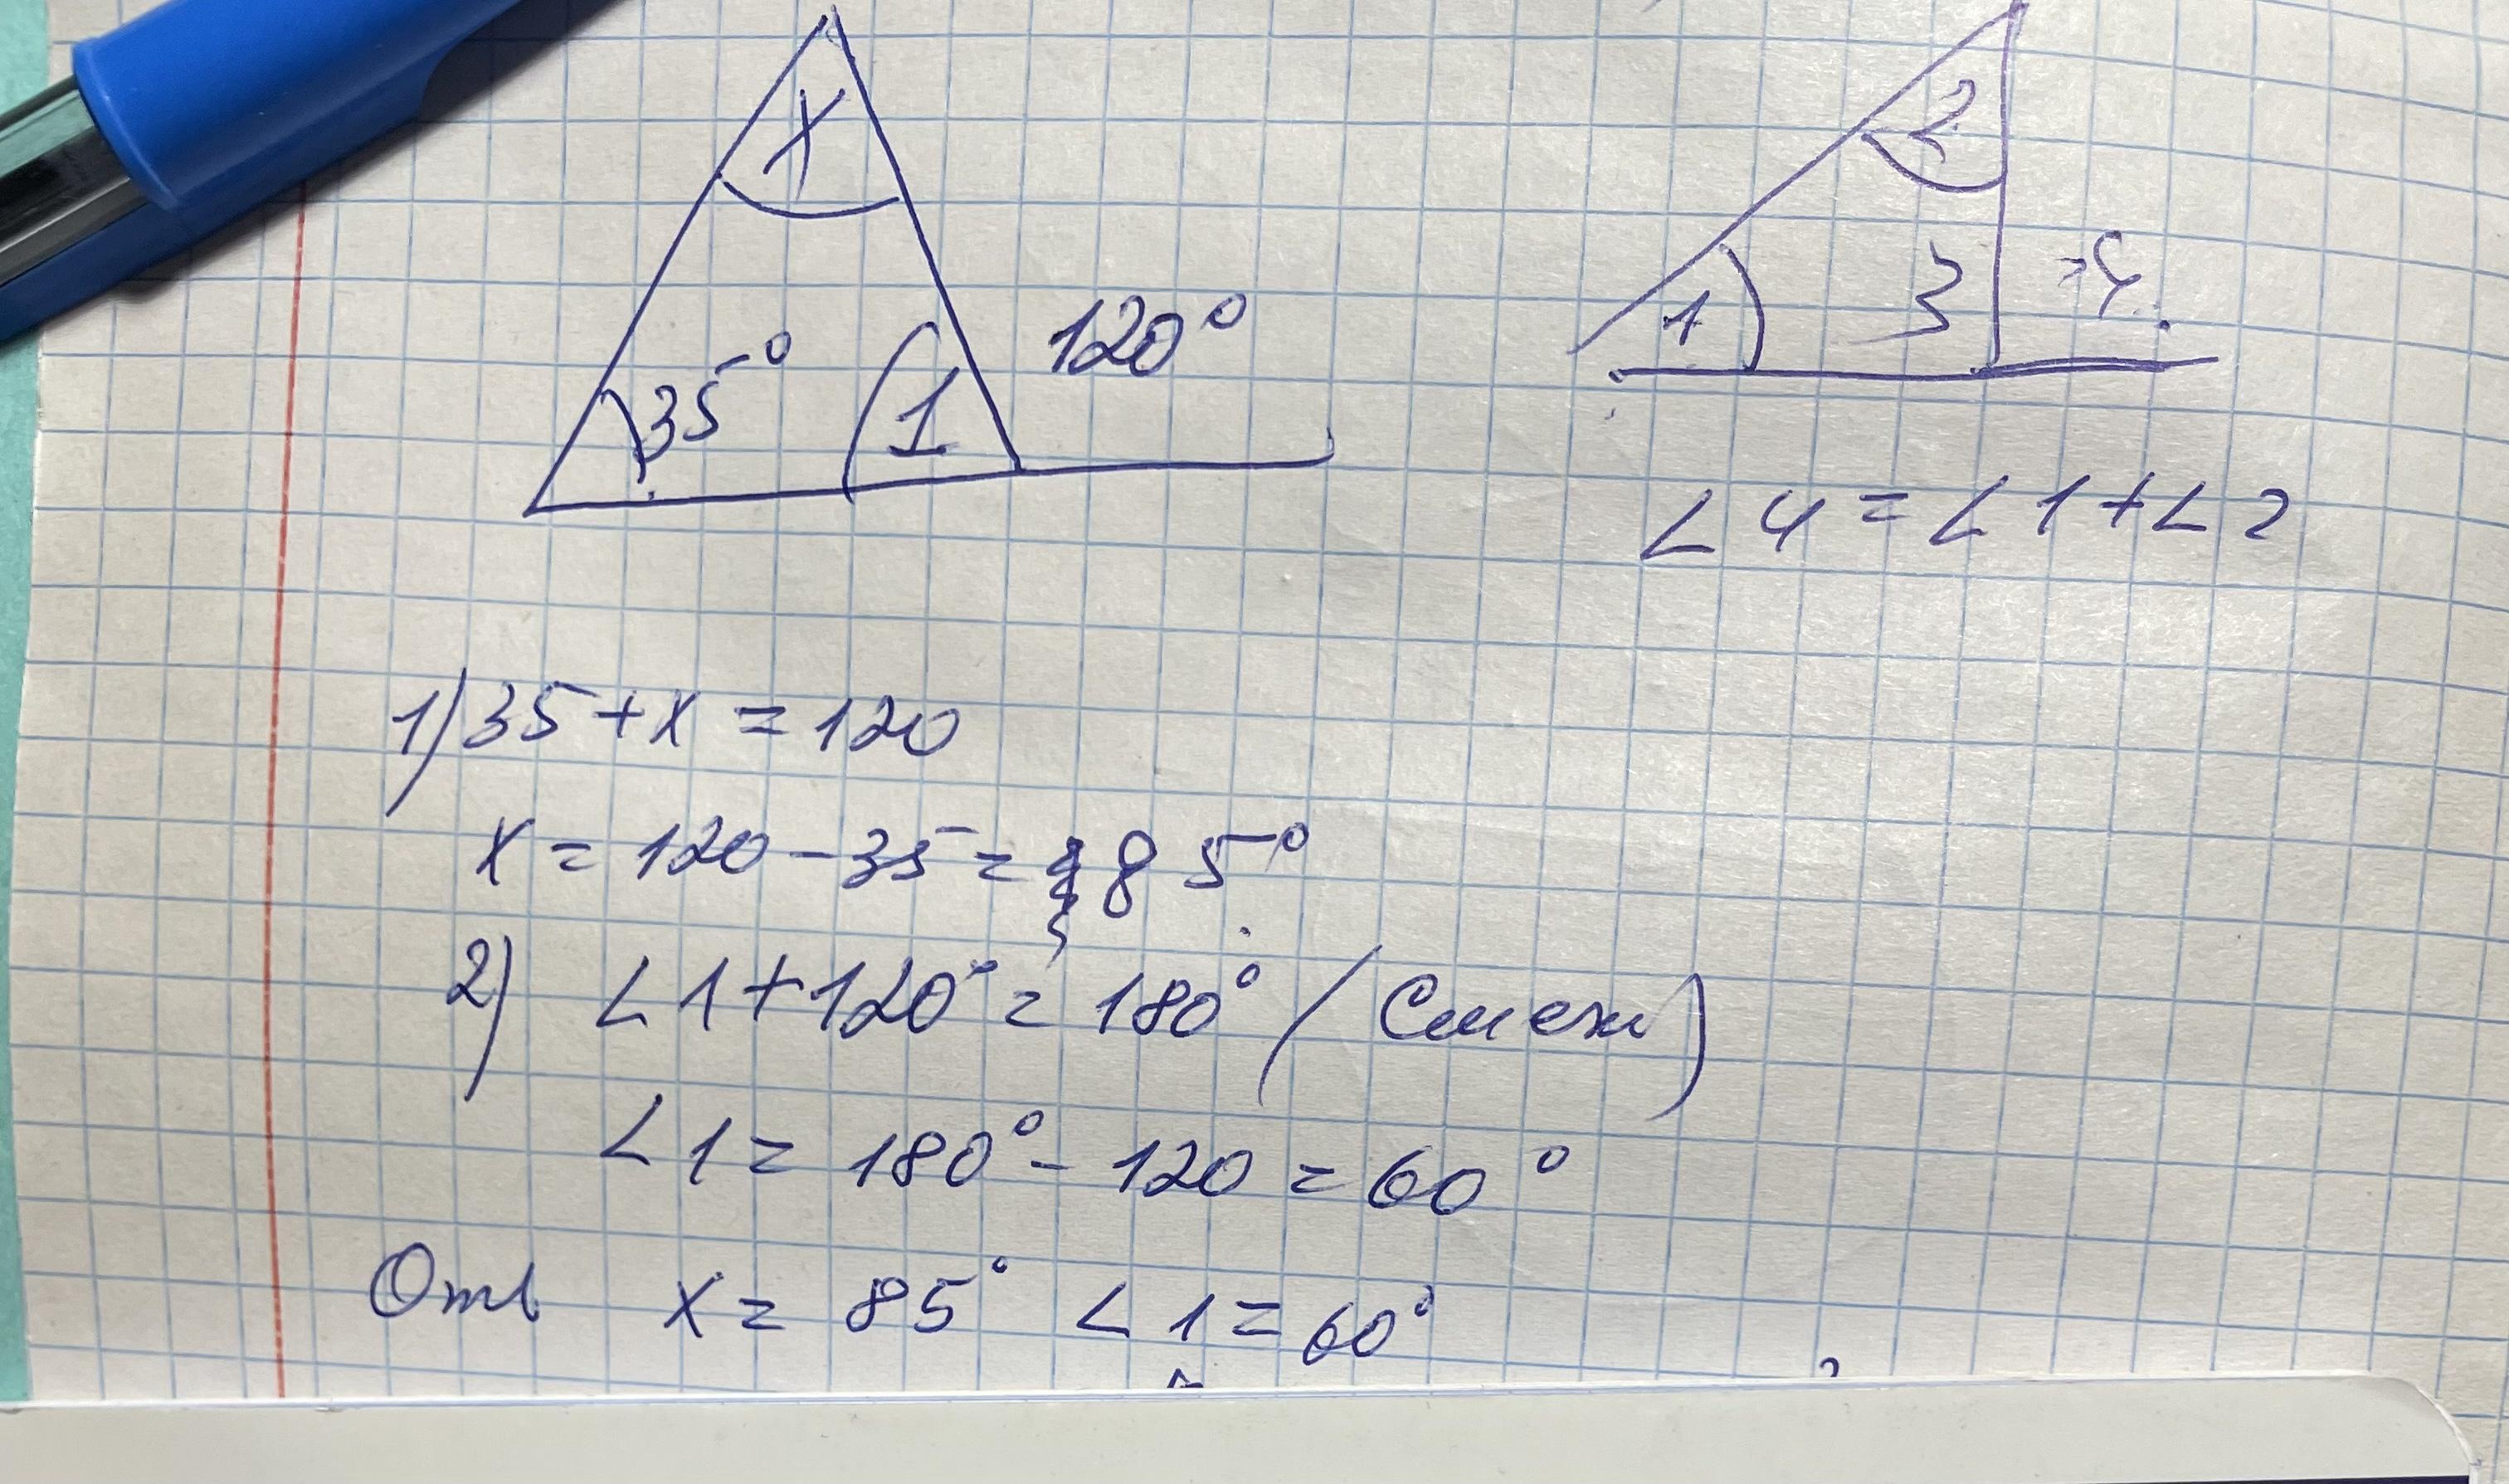 X
35°
1
120°
2
1
3
4
∠4 = ∠1 + ∠2
1) 35 + x = 120
x = 120 - 35 = 85°
2) ∠1 + 120° = 180° (Смежн)
∠1 = 180° - 120 = 60°
Отв x = 85° ∠1 = 60°